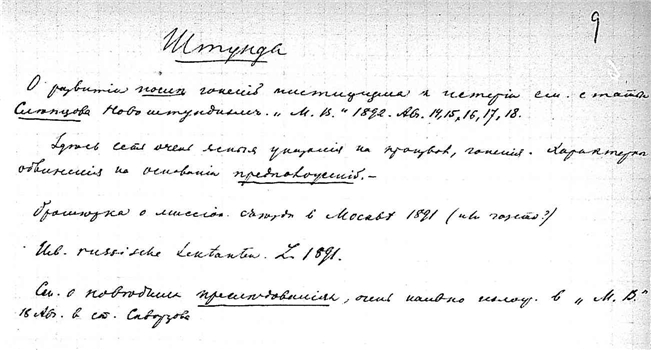 9
Штунда
О развитіи после гоненій мистицизма и истеріи см. статьи
Слепцова Новоштундизмъ. „М. В." 1892. Авг. 14, 15, 16, 17, 18.
Здесь есть очень ясныя указанія на процвѣт. гоненія. Характерны
обвиненія на основаніи предположеній. –
Брошюрка о миссіон. съѣздѣ в Москвѣ 1891 (
Ueb. russische Sectanten. L. 1891.
См. о новѣйших преслѣдованіях, очень наивно излож. в „М. В."
18 Авг. в ст. Скворцова